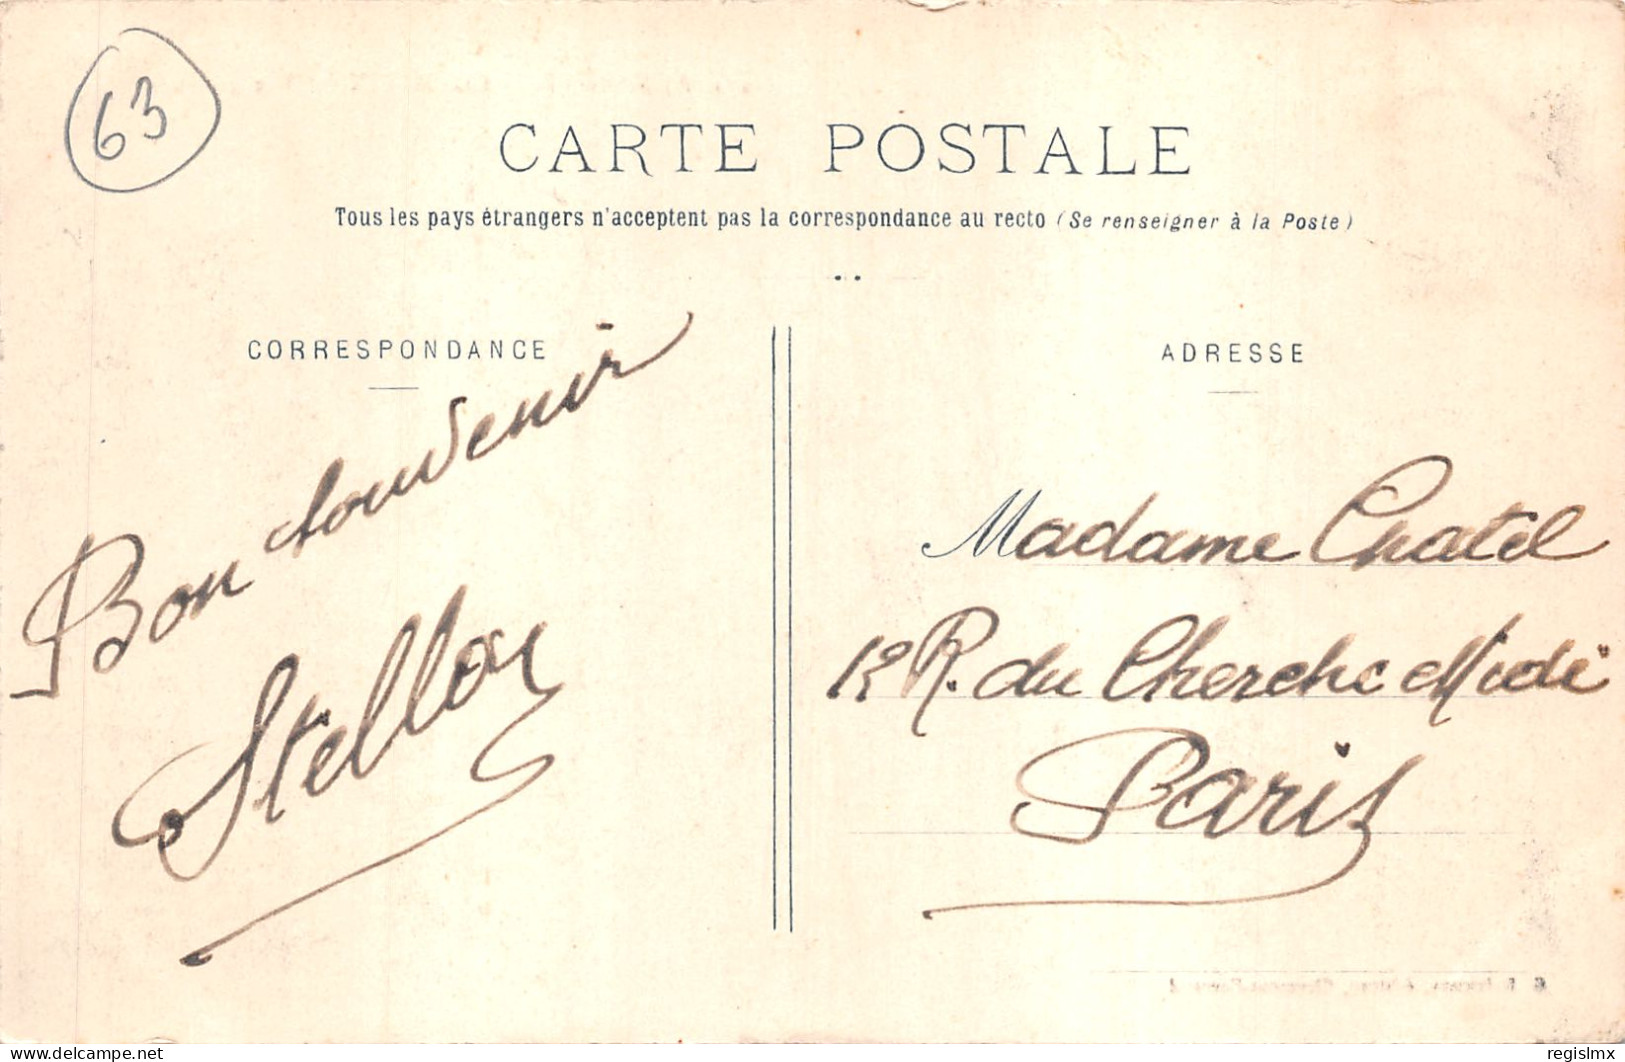 63
CARTE POSTALE
Tous les pays étrangers n'acceptent pas la correspondance au recto (Se renseigner à la Poste)
CORRESPONDANCE
Bon souvenir
ADRESSE
Madame Chatel
12 R. du Cherche Midi
Paris
delcampe.net
regislmx